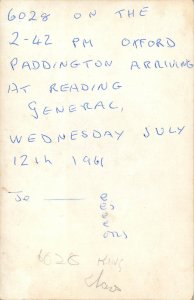 6028 ON THE
2-42 PM OXFORD
PADDINGTON ARRIVING
AT READING
GENERAL,
WEDNESDAY JULY
12th 1961
6028 KING
Class